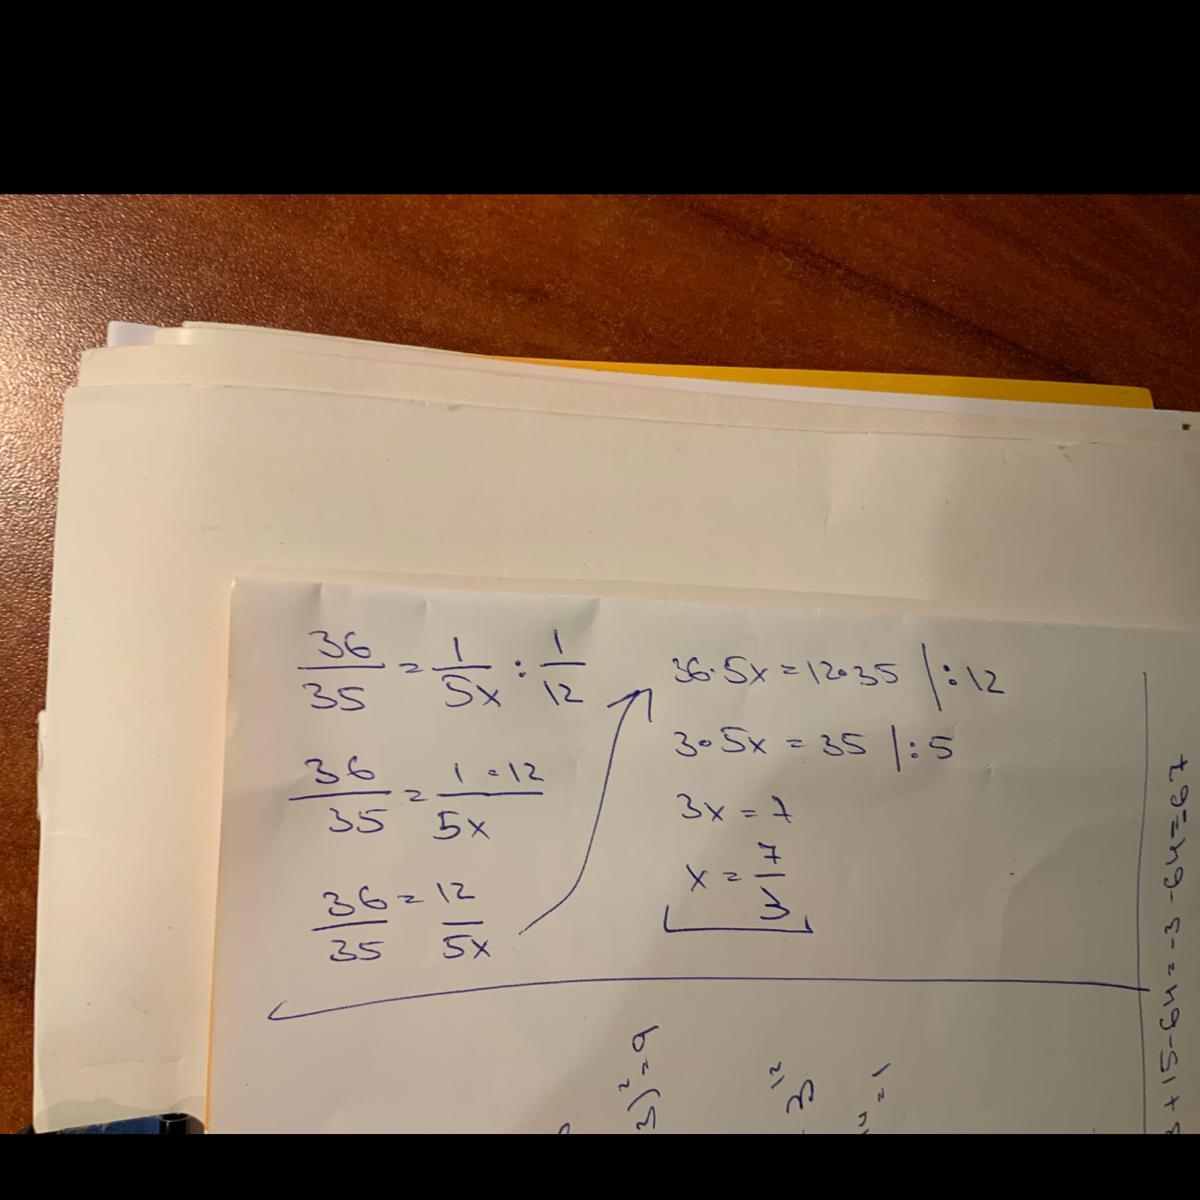 36/35 = 1/5x : 1/12
36/35 = 1·12/5x
36/35 = 12/5x
36·5x = 12·35 |:12
3·5x = 35 |:5
3x = 7
x = 7/3
3)² = 9
12
3
= 1
+ 15 - 64 = -3 - 64 = 67